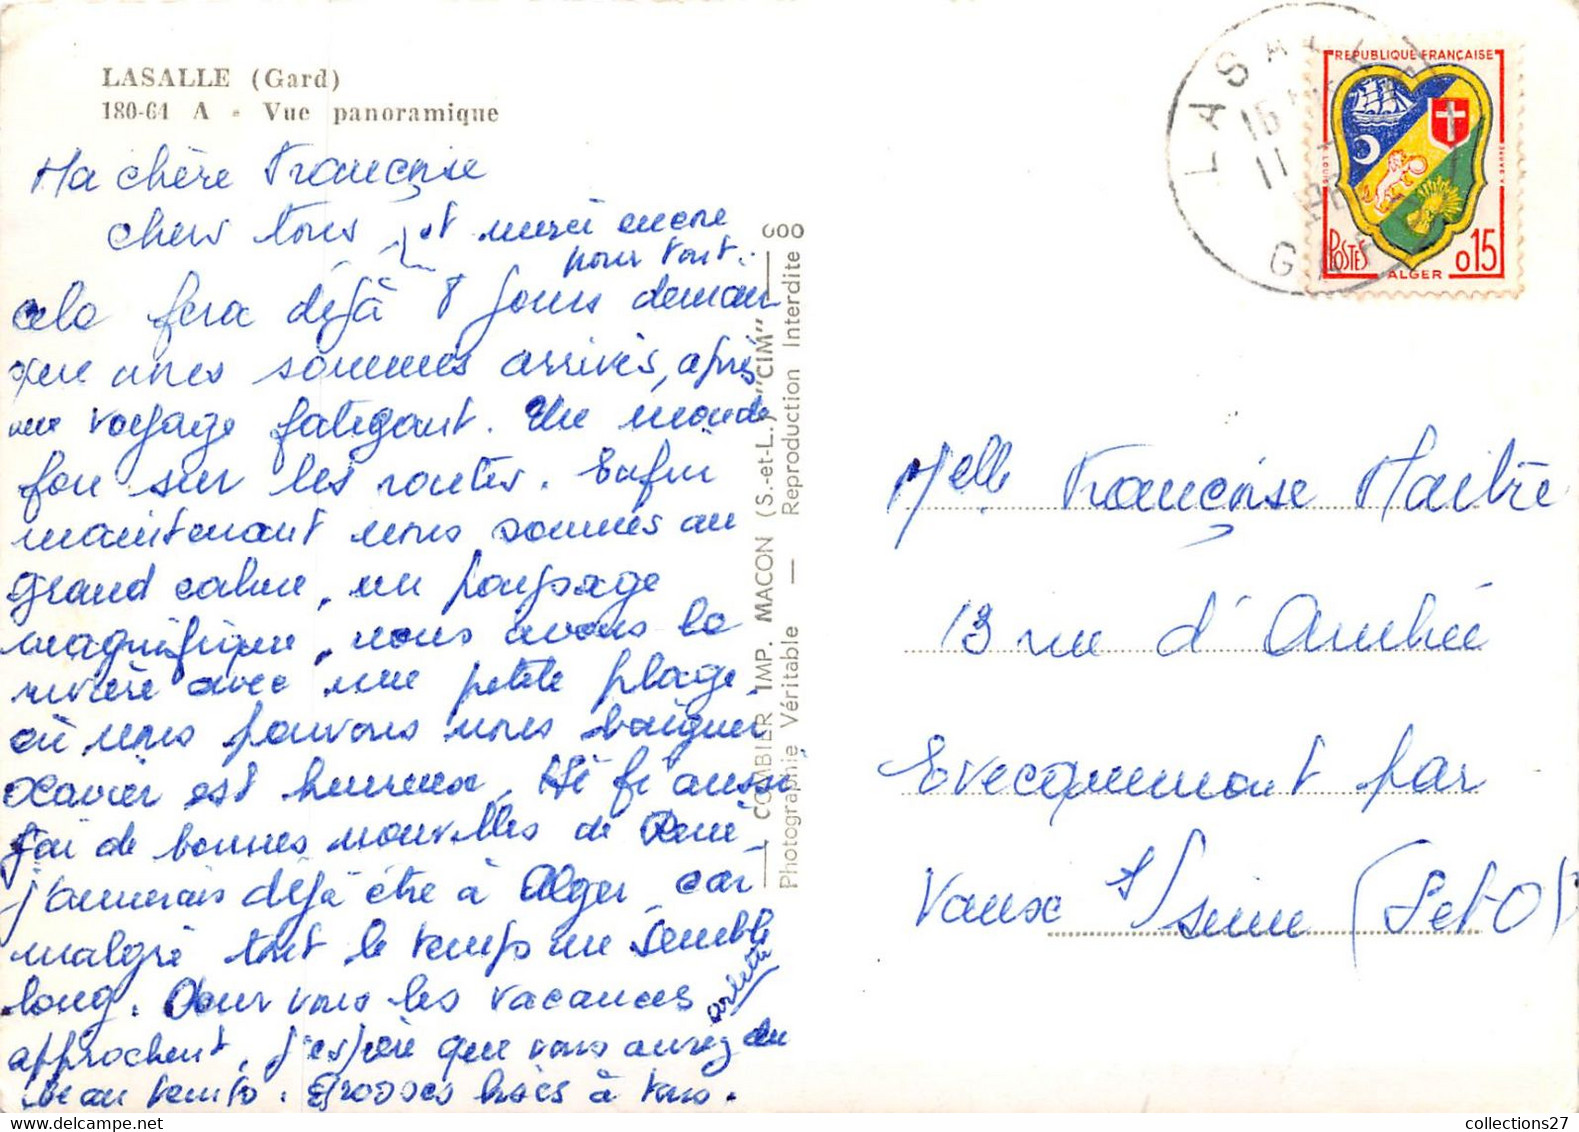 LASALLE (Gard)
180-64 A - Vue panoramique
Ma chère Françoise
chers tous et merci encore
pour tout..
cela fera déjà 8 jours demain
que nous sommes arrivés, après
une voyage fatigant. Un monde
fou sur les routes. Enfin
maintenant nous sommes au
grand calme, un paysage
magnifique, nous avons la
rivière avec une petite plage
où nous pouvons nous baigner
Xavier est heureux. aussi
J'ai de bonnes nouvelles de René
j'aimerais déjà être à Alger, car
malgré tout le temps me semble
long. Pour vous les vacances
approchent, j'espère que vous aurez du
beau temps. Grosses bises à tous.
arlette
COMBIER IMP. MACON (S.-et-L.) "CIM"
Photographie Véritable — Reproduction Interdite
LASALLE
15
11
G
REPUBLIQUE FRANÇAISE
POSTES
ALGER
0,15
Melle Françoise Maitre
13 rue d'Ambée
Evecquemont par
Vaux s/ seine (S et O)
collections27